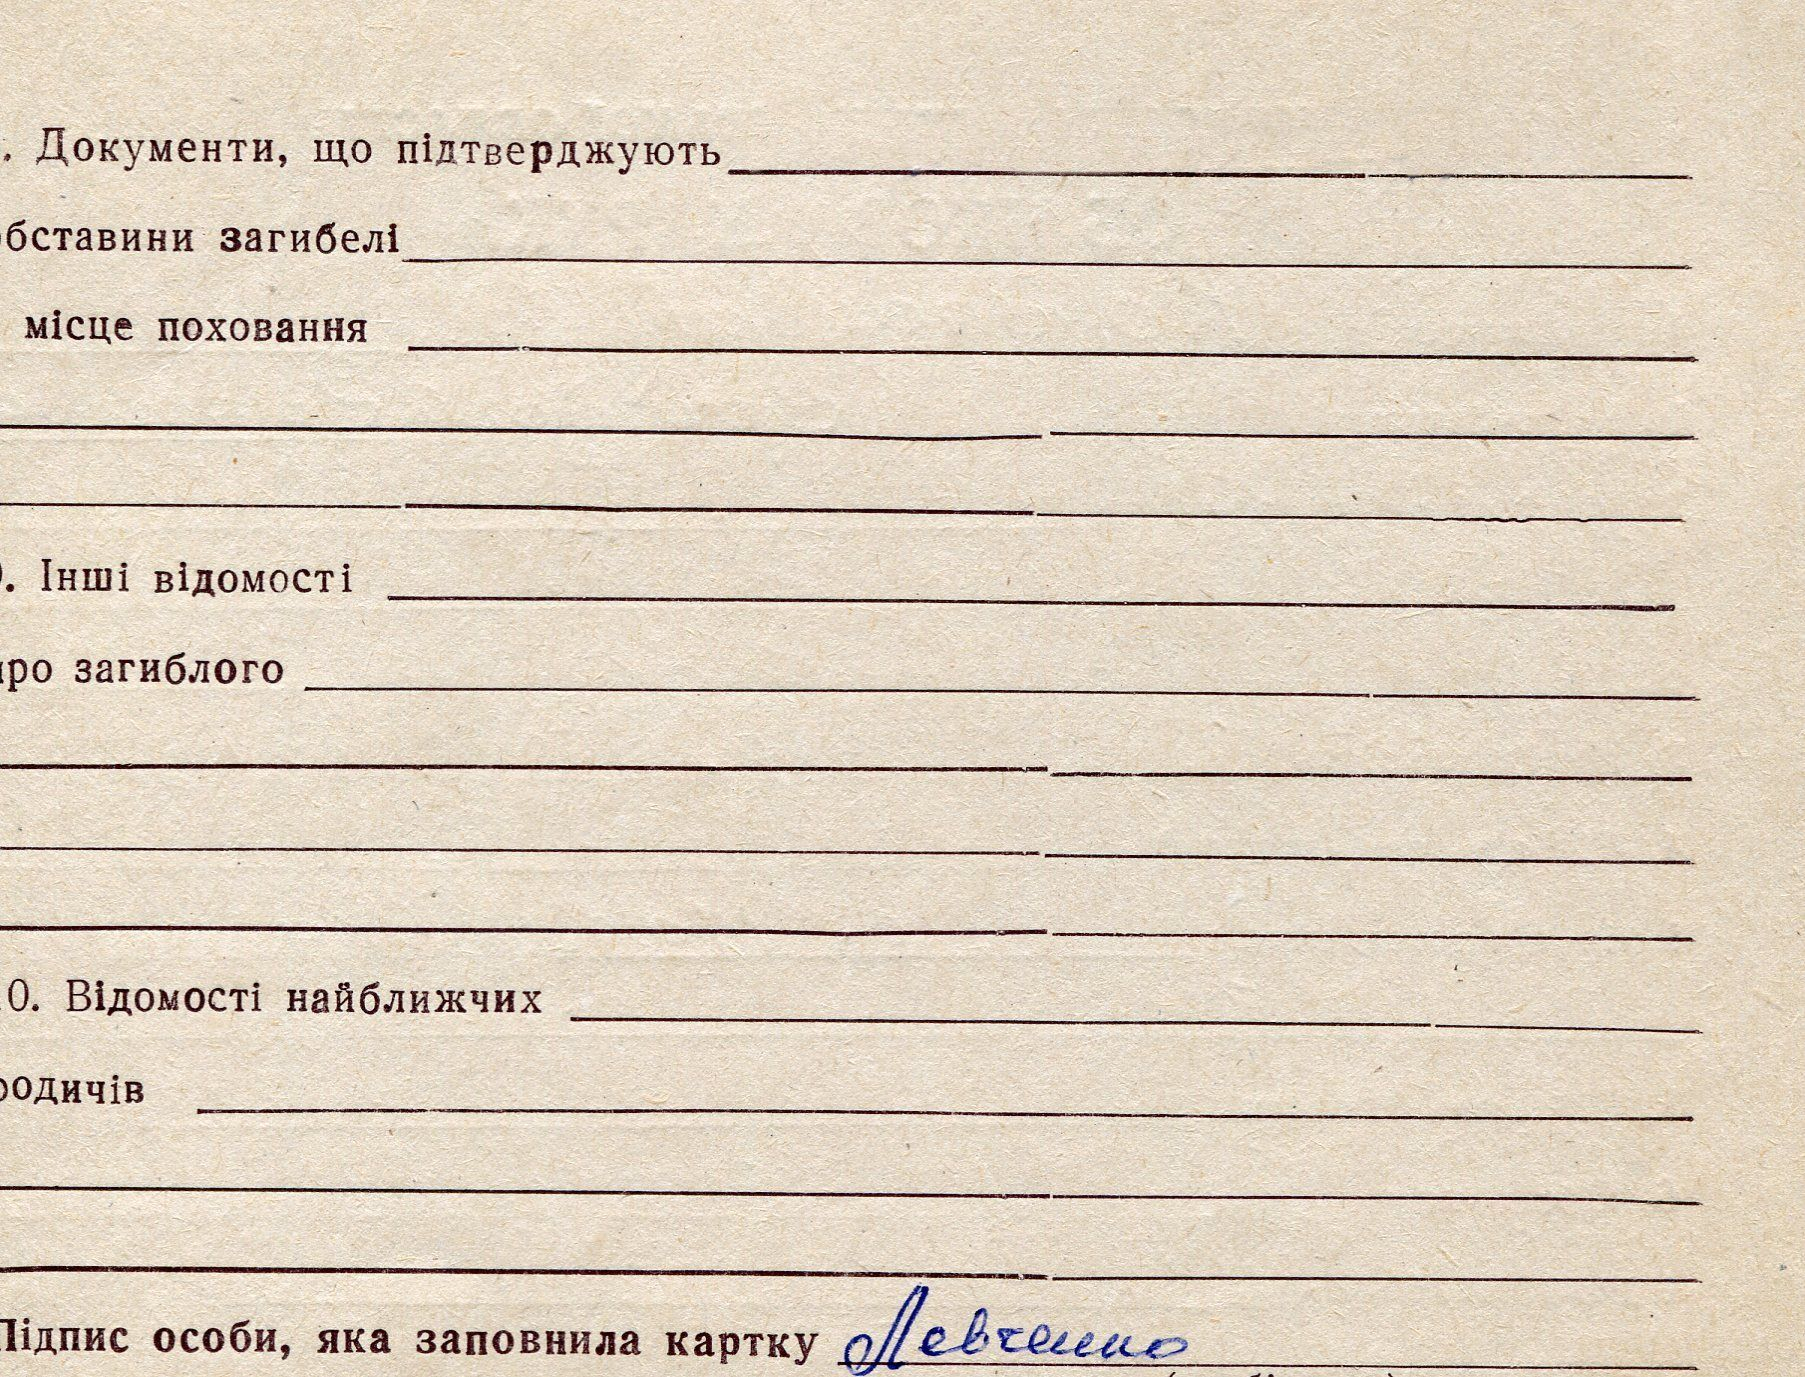 . Документи, що підтверджують
обставини загибелі
місце поховання
. Інші відомості
про загиблого
10. Відомості найближчих
родичів
Підпис особи, яка заповнила картку Левченко